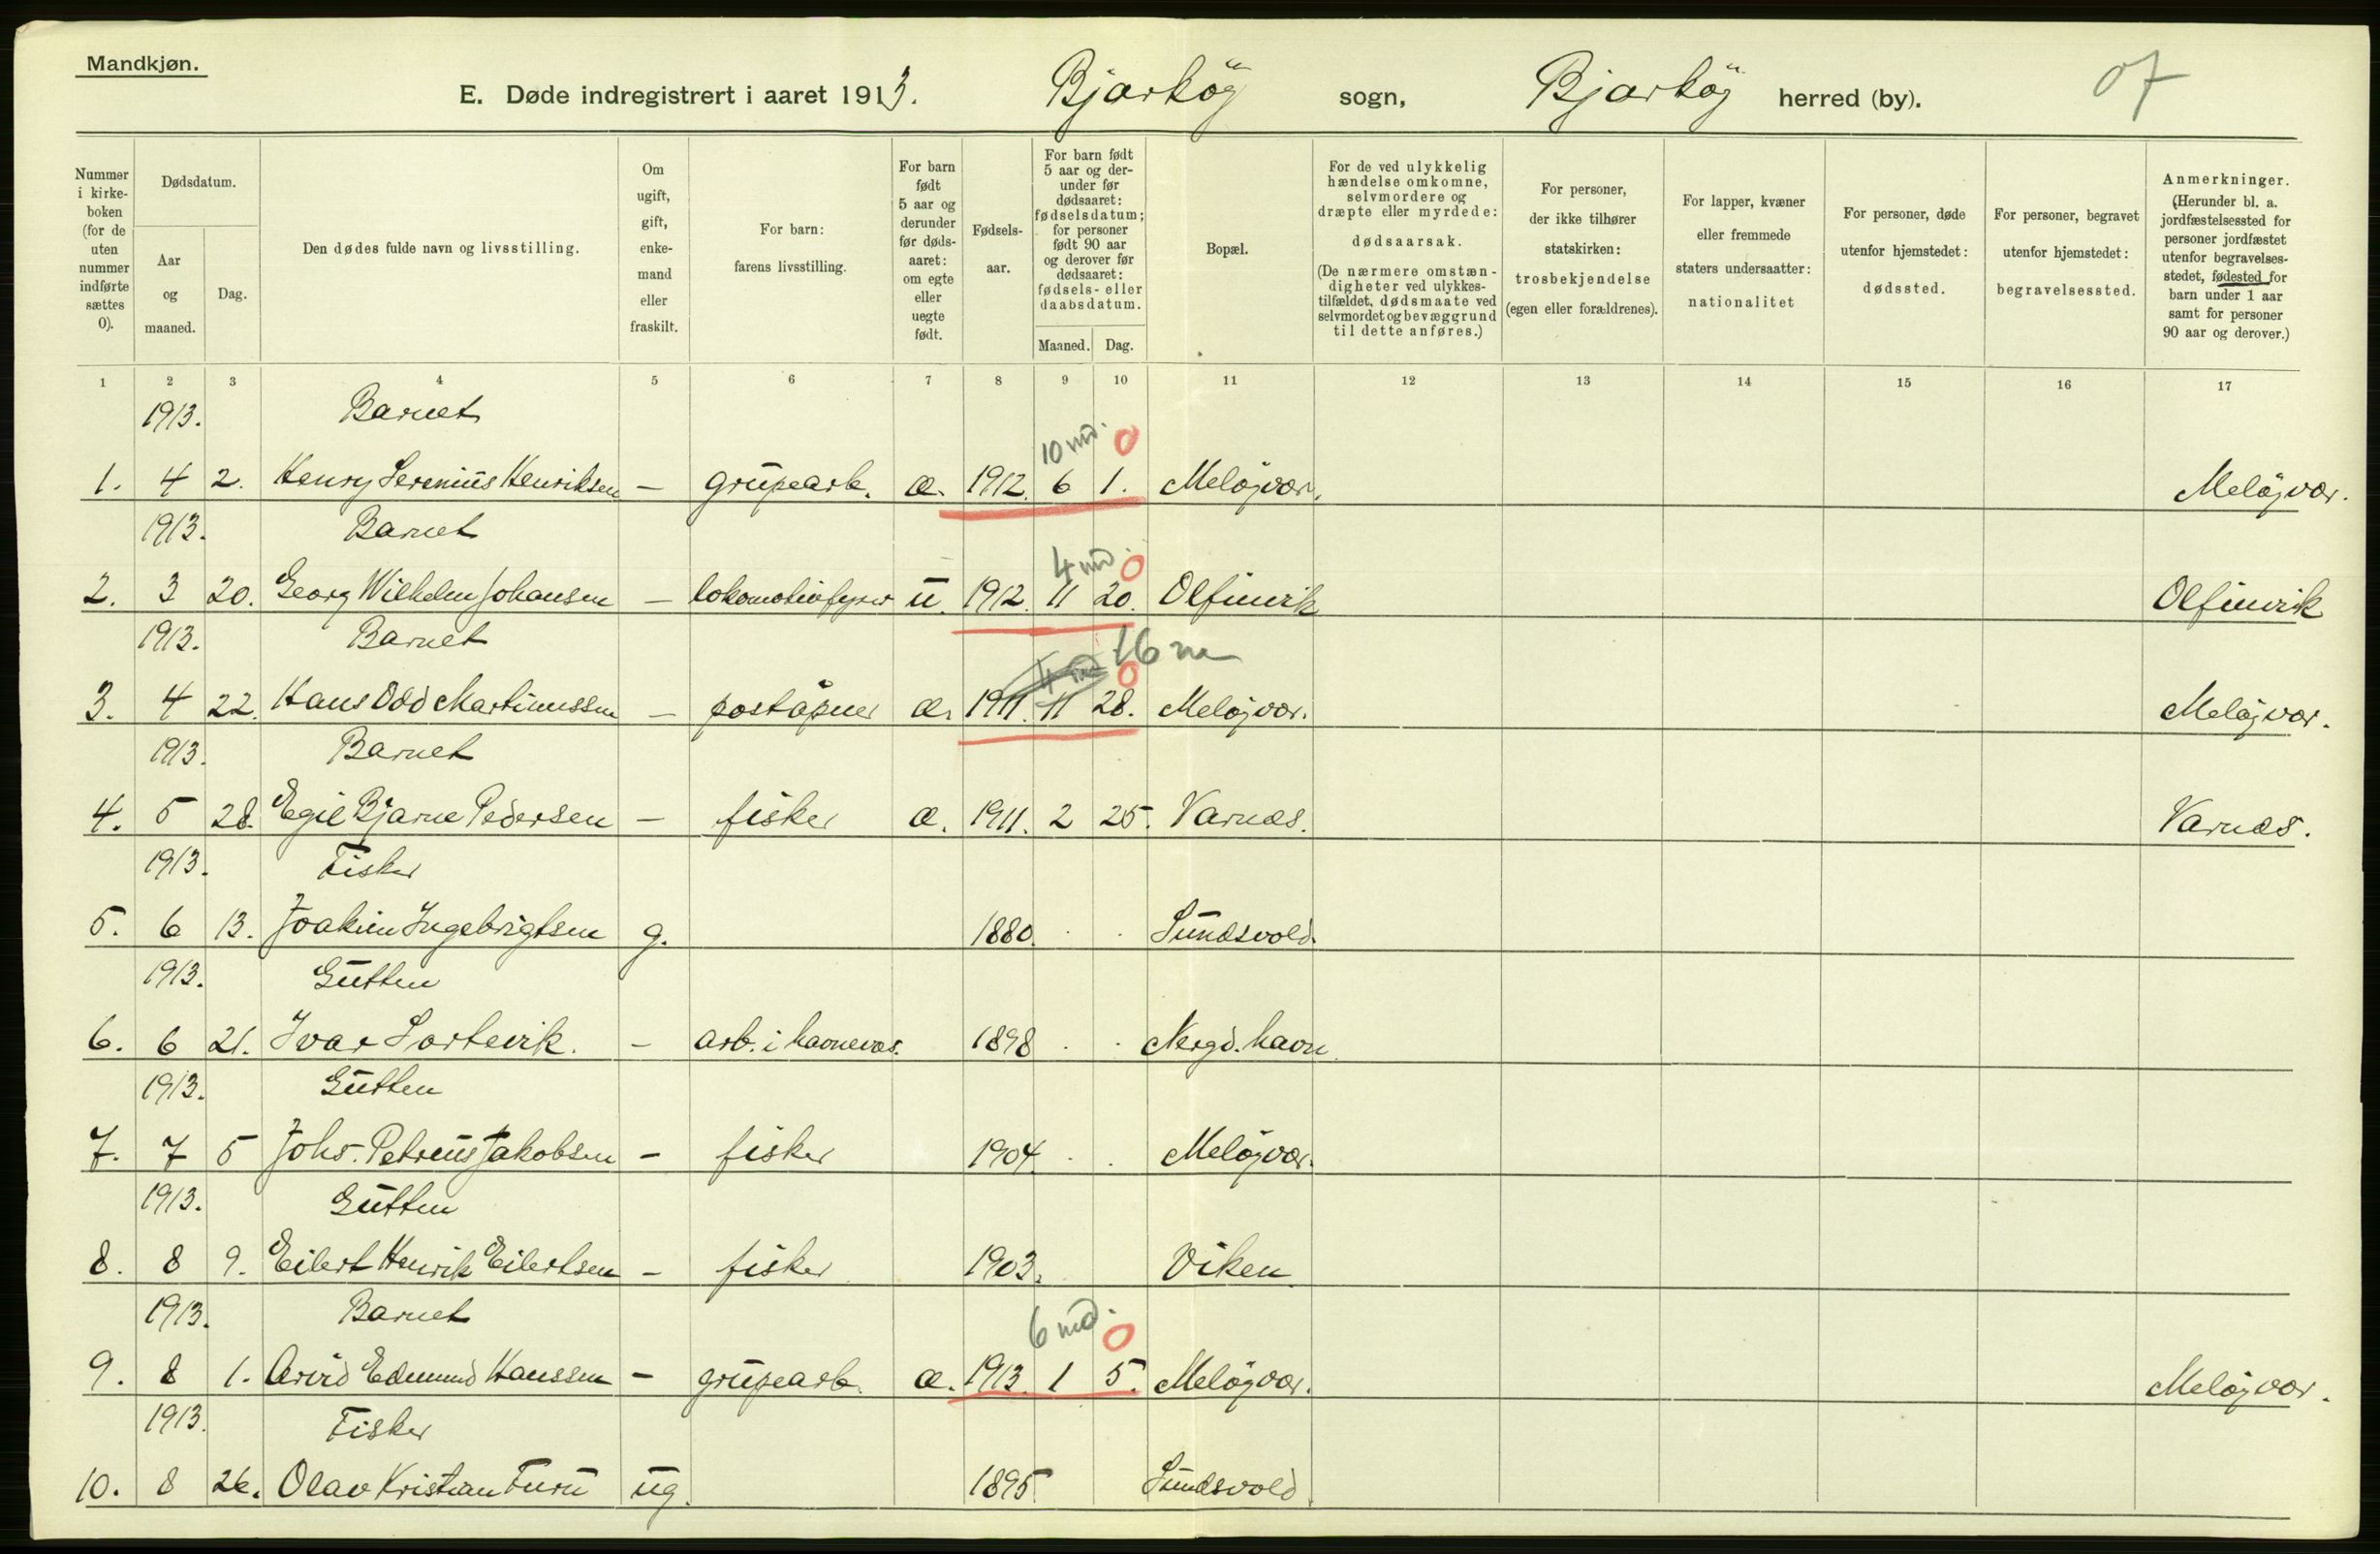 Mandkjøn.
E. Døde indregistrert i aaret 1913. Bjarköy sogn, Bjarköy herred (by). 07
Nummer i kirkeboken (for de uten nummer indførte sættes 0).
Dødsdatum.
Aar og maaned.
Dag.
Den dødes fulde navn og livsstilling.
Om ugift, gift, enkemand eller fraskilt.
For barn: farens livsstilling.
For barn født 5 aar og derunder før dødsaaret: om egte eller uegte født.
Fødselsaar.
For barn født 5 aar og derunder før dødsaaret: fødselsdatum; for personer født 90 aar og derover før dødsaaret: fødsels- eller daabsdatum.
Maaned. Dag.
Bopæl.
For de ved ulykkelig hændelse omkomne, selvmordere og dræpte eller myrdede: dødsaarsak. (De nærmere omstændigheter ved ulykkestilfældet, dødsmaate ved selvmordet og bevæggrund til dette anføres.)
For personer, der ikke tilhører statskirken: trosbekjendelse (egen eller forældrenes).
For lapper, kvæner eller fremmede staters undersaatter: nationalitet
For personer, døde utenfor hjemstedet: dødssted.
For personer, begravet utenfor hjemstedet: begravelsessted.
Anmerkninger. (Herunder bl. a. jordfæstelsessted for personer jordfæstet utenfor begravelsesstedet, fødested for barn under 1 aar samt for personer 90 aar og derover.)
1 2 3 4 5 6 7 8 9 10 11 12 13 14 15 16 17
1913. Barnet
10 md. 0
1. 4 2. Henry Serenius Henriksen — grubearb. æ. 1912. 6 1. Meløyvær. Meløyvær.
1913. Barnet
4 md. 0
2. 3 20. Georg Wilhelm Johansen — lokomotivfyrer u. 1912. 11 20. Olfinvik Olfinvik
1913. Barnet
4 md 16 m 0
3. 4 22. Hans Odd Martinussen — poståpner æ. 1911. 11 28. Meløyvær. Meløyvær.
1913. Barnet
4. 5 28. Egil Bjarne Pedersen — fisker æ. 1911. 2 25. Varnæs. Varnæs.
1913. Fisker
5. 6 13. Joakim Ingebrigtsen g. 1880. Sundsvold.
1913. Gutten
6. 6 21. Ivar Sortevik. — arb. i havnevæs. 1898 Nergd. havn
1913. Gutten
7. 7 5 Johs. Petrus Jakobsen — fisker 1904. Meløyvær.
1913. Gutten
8. 8 9. Eilert Henrik Eilertsen — fisker 1903. Viken
1913. Barnet
6 md. 0
9. 8 1. Arvid Edmund Hanssen — grubearb. æ. 1913. 1 5. Meløyvær. Meløyvær.
1913. Fisker
10. 8 26. Olav Kristian Furu ug. 1895 Sundsvold.